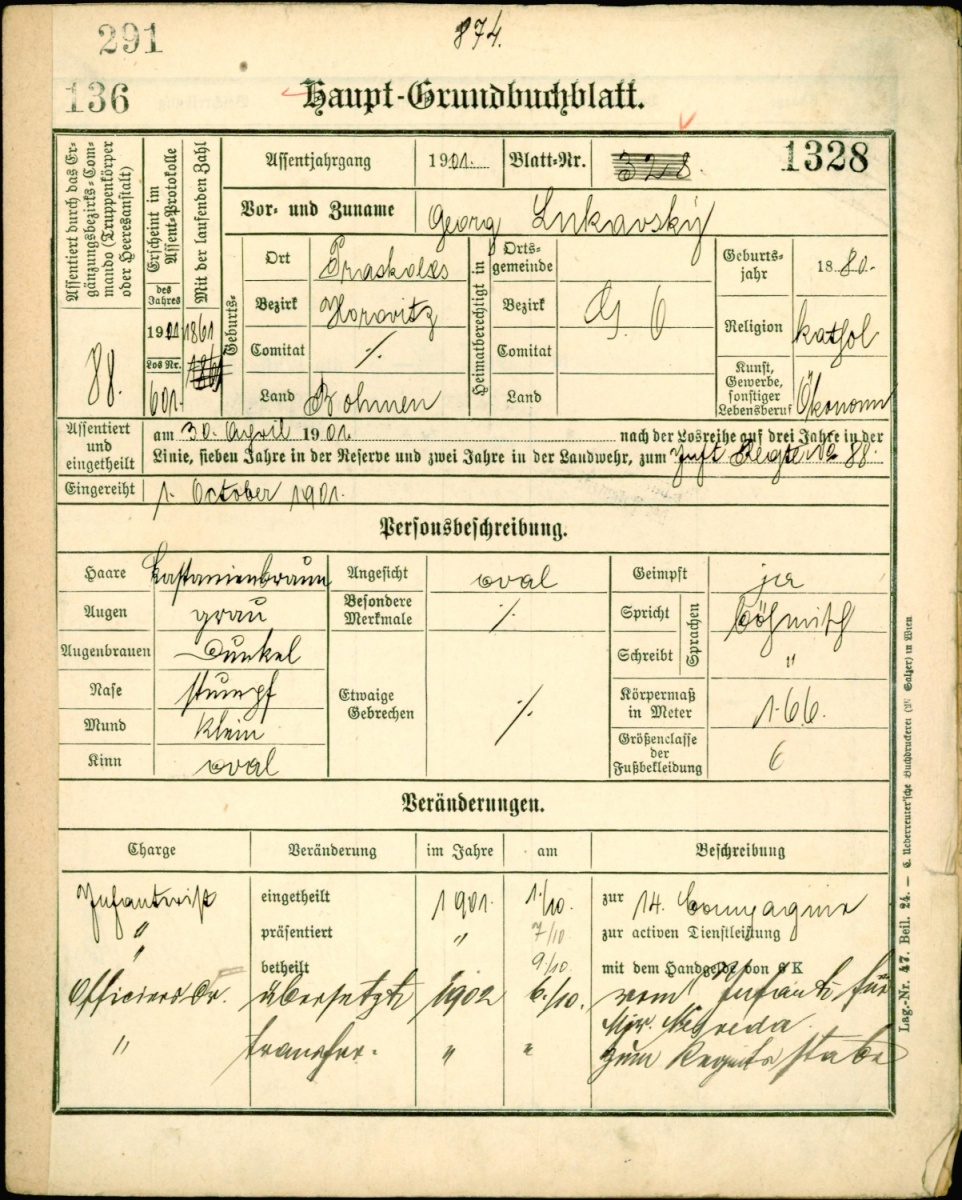 291
874.
136
Haupt-Grundbuchblatt.
Assentiert durch das Ergänzungsbezirks-Commando (Truppenkörper oder Heeresanstalt)
88.
Erscheint im Assent-Protokolle
des Jahres
1901
Los Nr.
601.
Mit der laufenden Zahl
1861
Assentjahrgang 1901. Blatt-Nr. 328. 1328
Vor- und Zuname Georg Lukavský
Geburts-
Ort Praskoles
Bezirk Horovitz
Comitat ·/.
Land Böhmen
Heimatberechtigt in
Ortsgemeinde
Bezirk
Comitat
Land
Geburtsjahr 1880.
Religion kathol
Kunst, Gewerbe, sonstiger Lebensberuf Ökonom
Assentiert und eingetheilt
am 30. April 1901 nach der Losreihe auf drei Jahre in der
Linie, sieben Jahre in der Reserve und zwei Jahre in der Landwehr, zum Inft Regte No 88.
Eingereiht 1. October 1901.
Personsbeschreibung.
Haare Kastanienbraun
Augen grau
Augenbrauen Dunkel
Nase stumpf
Mund klein
Kinn oval
Angesicht oval
Besondere Merkmale ·/.
Etwaige Gebrechen ·/.
Geimpft ja
Spricht Sprachen böhmisch
Schreibt "
Körpermaß in Meter 1·66.
Größenclasse der Fußbekleidung 6
Veränderungen.
Charge Veränderung im Jahre am Beschreibung
Infanterist eingetheilt 1901. 1./10. zur 14. Compagnie
" präsentiert " 7/10 zur activen Dienstleistung
" betheilt 9/10 mit dem Handgelde von 6 K
Officiers Dr. übersetzt 1902 6./10. vom Infant. für
" transfer. " " zum Regmts stabe
Lag.-Nr. 47. Beil. 24. — C. Ueberreuter'sche Buchdruckerei (M. Salzer) in Wien